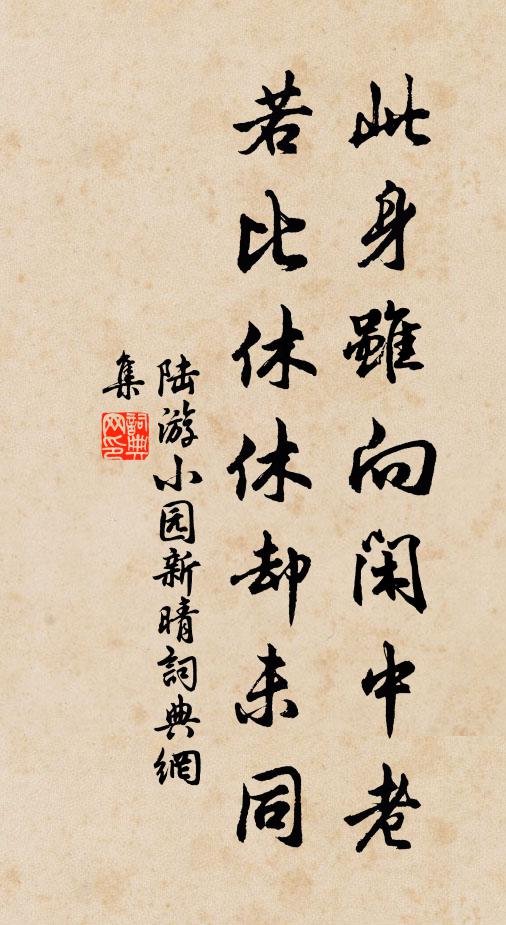 此身雖向閑中老
若比休休却未同
陆游小园新晴詞典網
集
詞典網印